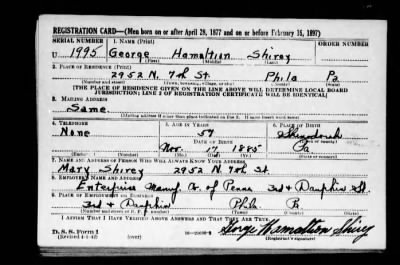 REGISTRATION CARD—(Men born on or after April 28, 1877 and on or before February 16, 1897)
SERIAL NUMBER 1. NAME (Print) ORDER NUMBER
U 1995 George Hamaltion Shirey
(First) (Middle) (Last)
2. PLACE OF RESIDENCE (Print)
2952 N. 9th St. Phila Pa
(Number and street) (Town, township, village, or city) (County) (State)
[THE PLACE OF RESIDENCE GIVEN ON THE LINE ABOVE WILL DETERMINE LOCAL BOARD
JURISDICTION; LINE 2 OF REGISTRATION CERTIFICATE WILL BE IDENTICAL]
3. MAILING ADDRESS
Same.
[Mailing address if other than place indicated on line 2. If same insert word same]
4. TELEPHONE 5. AGE IN YEARS 6. PLACE OF BIRTH
None 57
DATE OF BIRTH
Nov. 17 1885 Pa
(Exchange) (Number) (Mo.) (Day) (Yr.) (State or country)
7. NAME AND ADDRESS OF PERSON WHO WILL ALWAYS KNOW YOUR ADDRESS
Mary Shirey 2952 N. 9th St.
8. EMPLOYER'S NAME AND ADDRESS
Enterprise Manuf. Co. of Penna 3rd & Dauphin St.
9. PLACE OF EMPLOYMENT OR BUSINESS
3rd & Dauphin Phila Pa
(Number and street or R. F. D. number) (Town) (County) (State)
I AFFIRM THAT I HAVE VERIFIED ABOVE ANSWERS AND THAT THEY ARE TRUE.
D. S. S. Form 1 George Hamaltion Shirey
(Revised 4-1-42) (over) (Registrant's signature)